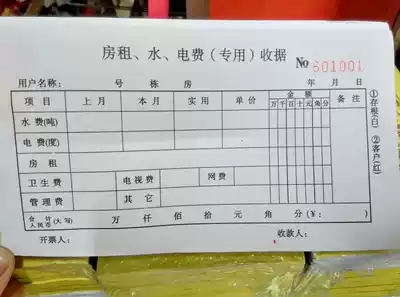 房租、水、电费（专用）收据 No 601001
用户名称： 号 栋 房 年 月 日
项目 上月 本月 实用 单价 金额 备注
万千百十元角分
水费(吨)
电费(度)
房租
卫生费 电视费 网费
管理费 其它
合计人民币(大写) 万 仟 佰 拾 元 角 分(￥: )
开票人： 收款人：
①存根(白) ②客户(红)